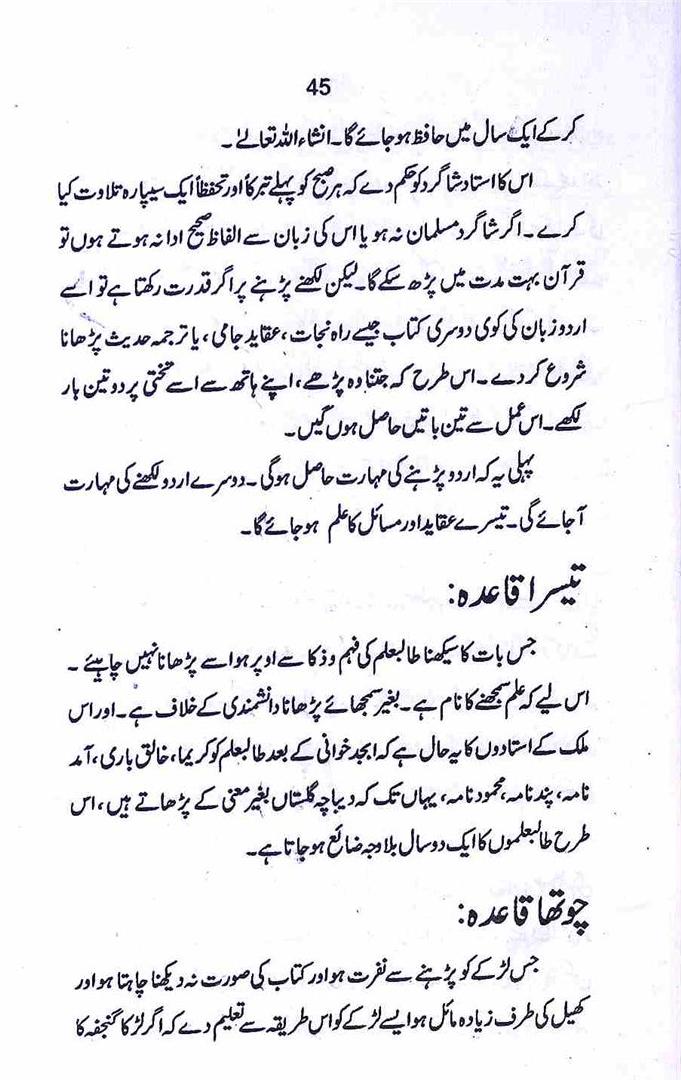 45
کر کے ایک سال میں حافظ ہو جائے گا۔ انشاء اللہ تعالیٰ۔
اس کا استاد شاگرد کو حکم دے کہ ہر صبح کو پہلے تبرکاً اور تحفظاً ایک سیپارہ تلاوت کیا
کرے۔ اگر شاگرد مسلمان نہ ہو یا اس کی زبان سے الفاظ صحیح ادا نہ ہوتے ہوں تو
قرآن بہت مدت میں پڑھ سکے گا۔ لیکن لکھنے پڑہنے پر اگر قدرت رکھتا ہے تو اسے
اردو زبان کی کوی دوسری کتاب جیسے راہ نجات، عقاید جامی، یا ترجمہ حدیث پڑھانا
شروع کر دے۔ اس طرح کہ جتنا وہ پڑھے، اپنے ہاتھ سے اسے تختی پر دو تین بار
لکھے۔ اس عمل سے تین باتیں حاصل ہوں گیں۔
پہلی یہ کہ اردو پڑہنے کی مہارت حاصل ہوگی۔ دوسرے اردو لکھنے کی مہارت
آ جائے گی۔ تیسرے عقاید اور مسائل کا علم ہو جائے گا۔
تیسرا قاعدہ:
جس بات کا سیکھنا طالبعلم کی فہم و ذکا سے اوپر ہو اسے پڑھانا نہیں چاہیئے۔
اس لیے کہ علم سمجھنے کا نام ہے۔ بغیر سمجھائے پڑھانا دانشمندی کے خلاف ہے۔ اور اس
ملک کے استادوں کا یہ حال ہے کہ ابجد خوانی کے بعد طالبعلم کو کریما، خالق باری، آمد
نامہ، پند نامہ، محمود نامہ، یہاں تک کہ دیباچہ گلستاں بغیر معنی کے پڑھاتے ہیں، اس
طرح طالبعلموں کا ایک دو سال بلا وجہ ضائع ہو جاتا ہے۔
چوتھا قاعدہ:
جس لڑکے کو پڑہنے سے نفرت ہو اور کتاب کی صورت نہ دیکھنا چاہتا ہو اور
کھیل کی طرف زیادہ مائل ہو ایسے لڑکے کو اس طریقہ سے تعلیم دے کہ اگر لڑکا گنجفہ کا